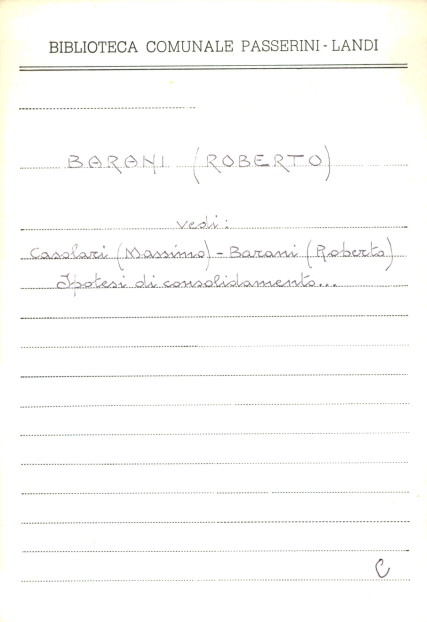 BIBLIOTECA COMUNALE PASSERINI - LANDI
BARANI (ROBERTO)
vedi:
Casolari (Massimo) - Barani (Roberto)
Ipotesi di consolidamento...
C